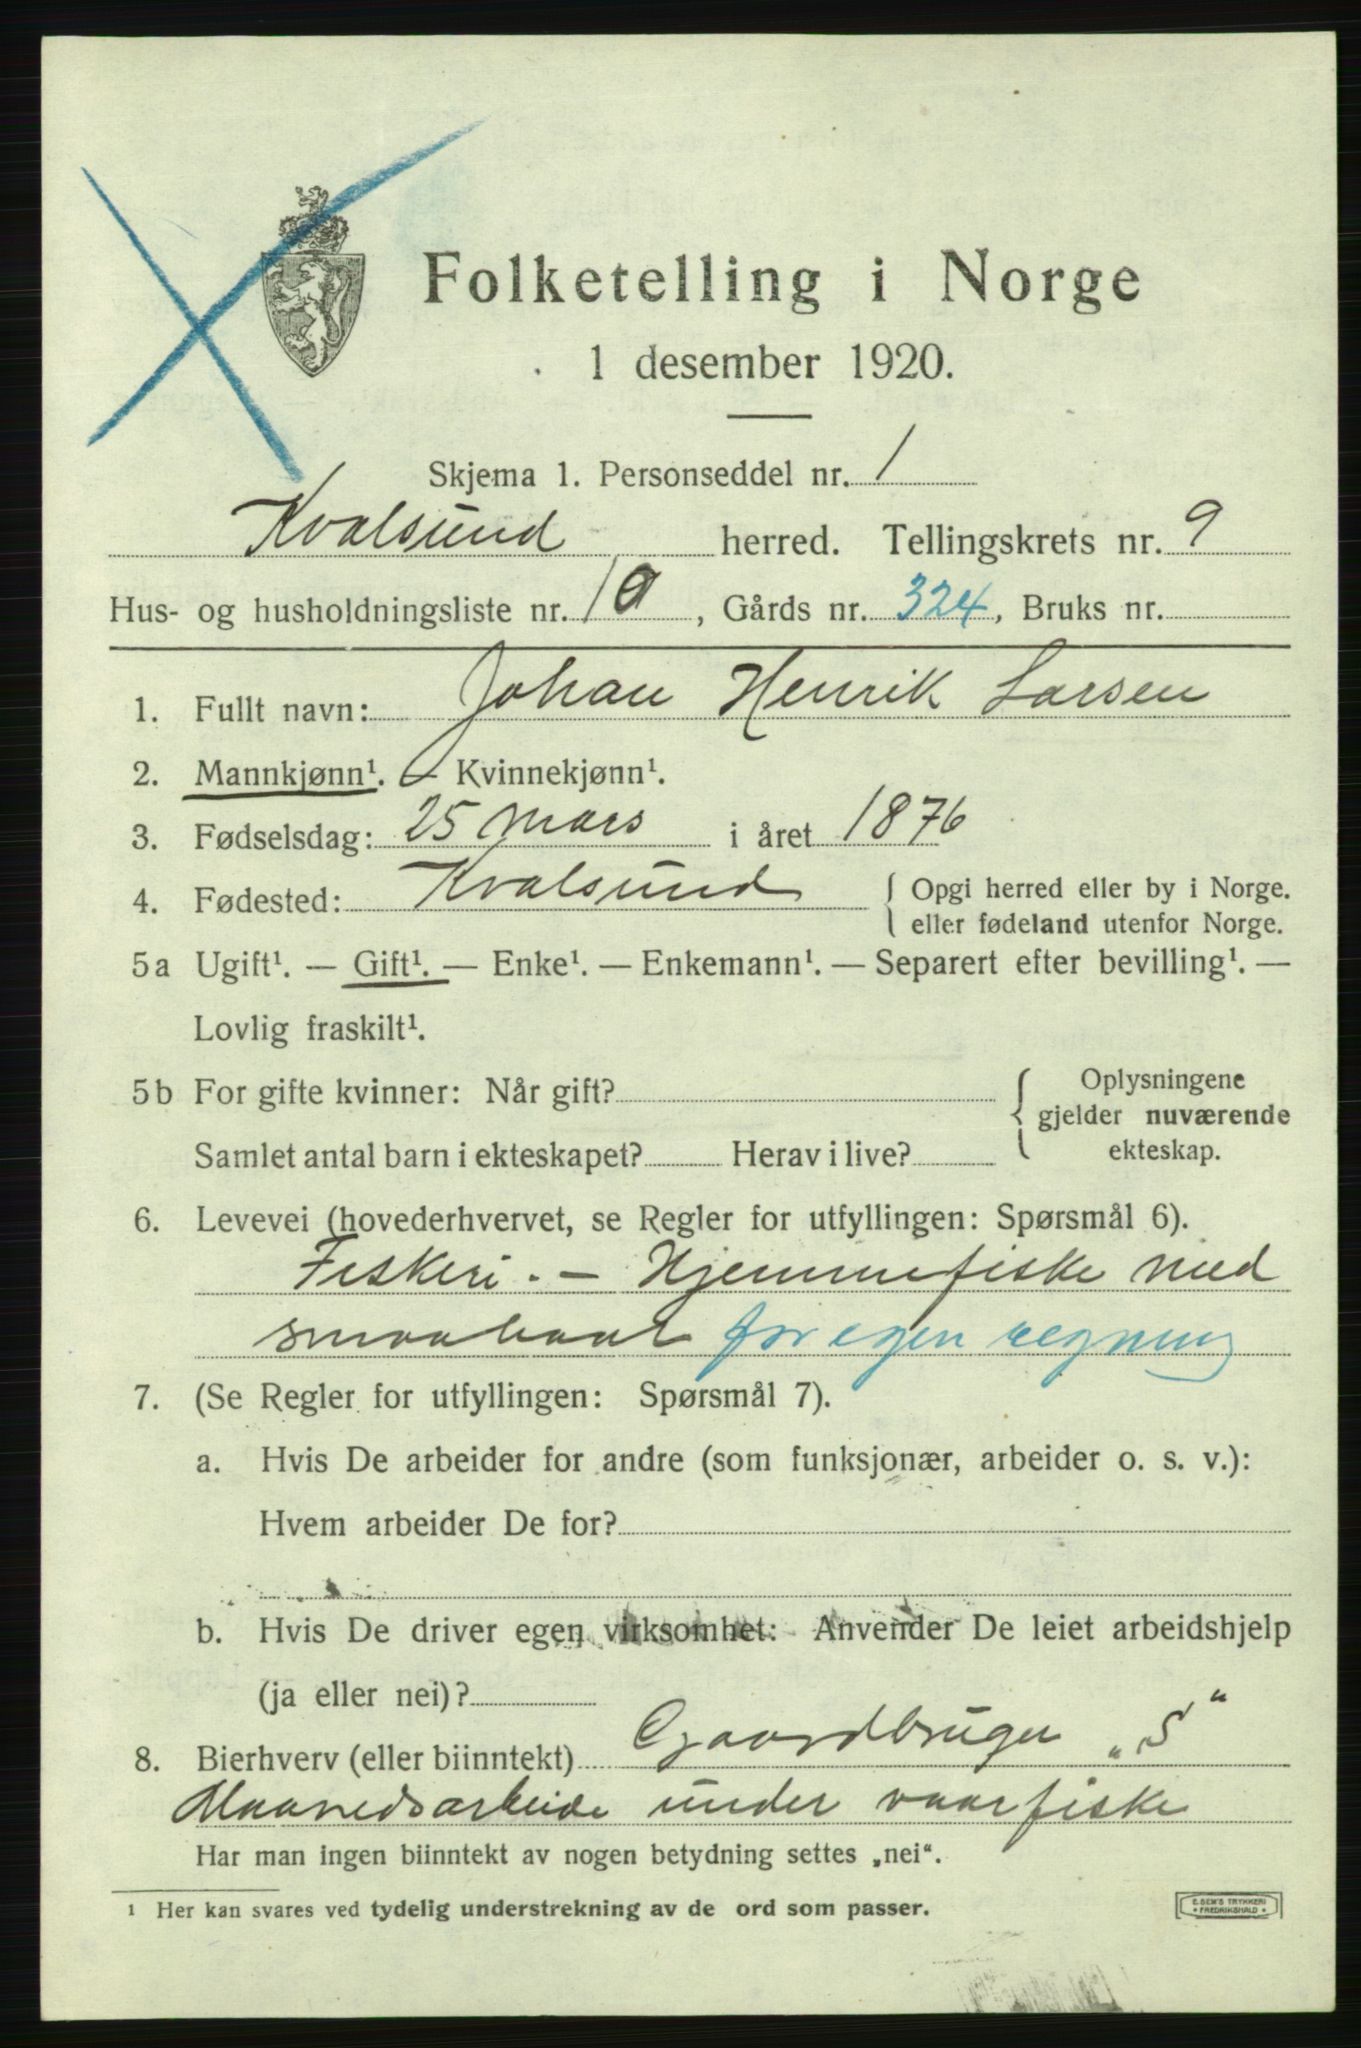 Folketelling i Norge
1 desember 1920.
Skjema 1. Personseddel nr. 1
Kvalsund herred. Tellingskrets nr. 9
Hus- og husholdningsliste nr. 10, Gårds nr. 324, Bruks nr.
1. Fullt navn: Johan Henrik Larsen
2. Mannkjønn¹. — Kvinnekjønn¹.
3. Fødselsdag: 25 mars i året 1876
4. Fødested: Kvalsund { Opgi herred eller by i Norge.
eller fødeland utenfor Norge.
5a Ugift¹. — Gift¹. — Enke¹. — Enkemann¹. — Separert efter bevilling¹. —
Lovlig fraskilt¹.
5b For gifte kvinner: Når gift? { Oplysningene
gjelder nuværende
Samlet antal barn i ekteskapet? Herav i live? ekteskap.
6. Levevei (hovederhvervet, se Regler for utfyllingen: Spørsmål 6).
Fiskeri. — Hjemmefiske med
smaabaat for egen regning
7. (Se Regler for utfyllingen: Spørsmål 7).
a. Hvis De arbeider for andre (som funksjonær, arbeider o. s. v.):
Hvem arbeider De for?
b. Hvis De driver egen virksomhet: Anvender De leiet arbeidshjelp
(ja eller nei)?
8. Bierhverv (eller biinntekt) Gaardbruger „S“
Maanedsarbeide under vaarfiske
Har man ingen biinntekt av nogen betydning settes „nei“.
1 Her kan svares ved tydelig understrekning av de ord som passer.
E. SEM'S TRYKKERI
* FREDRIKSHALD *